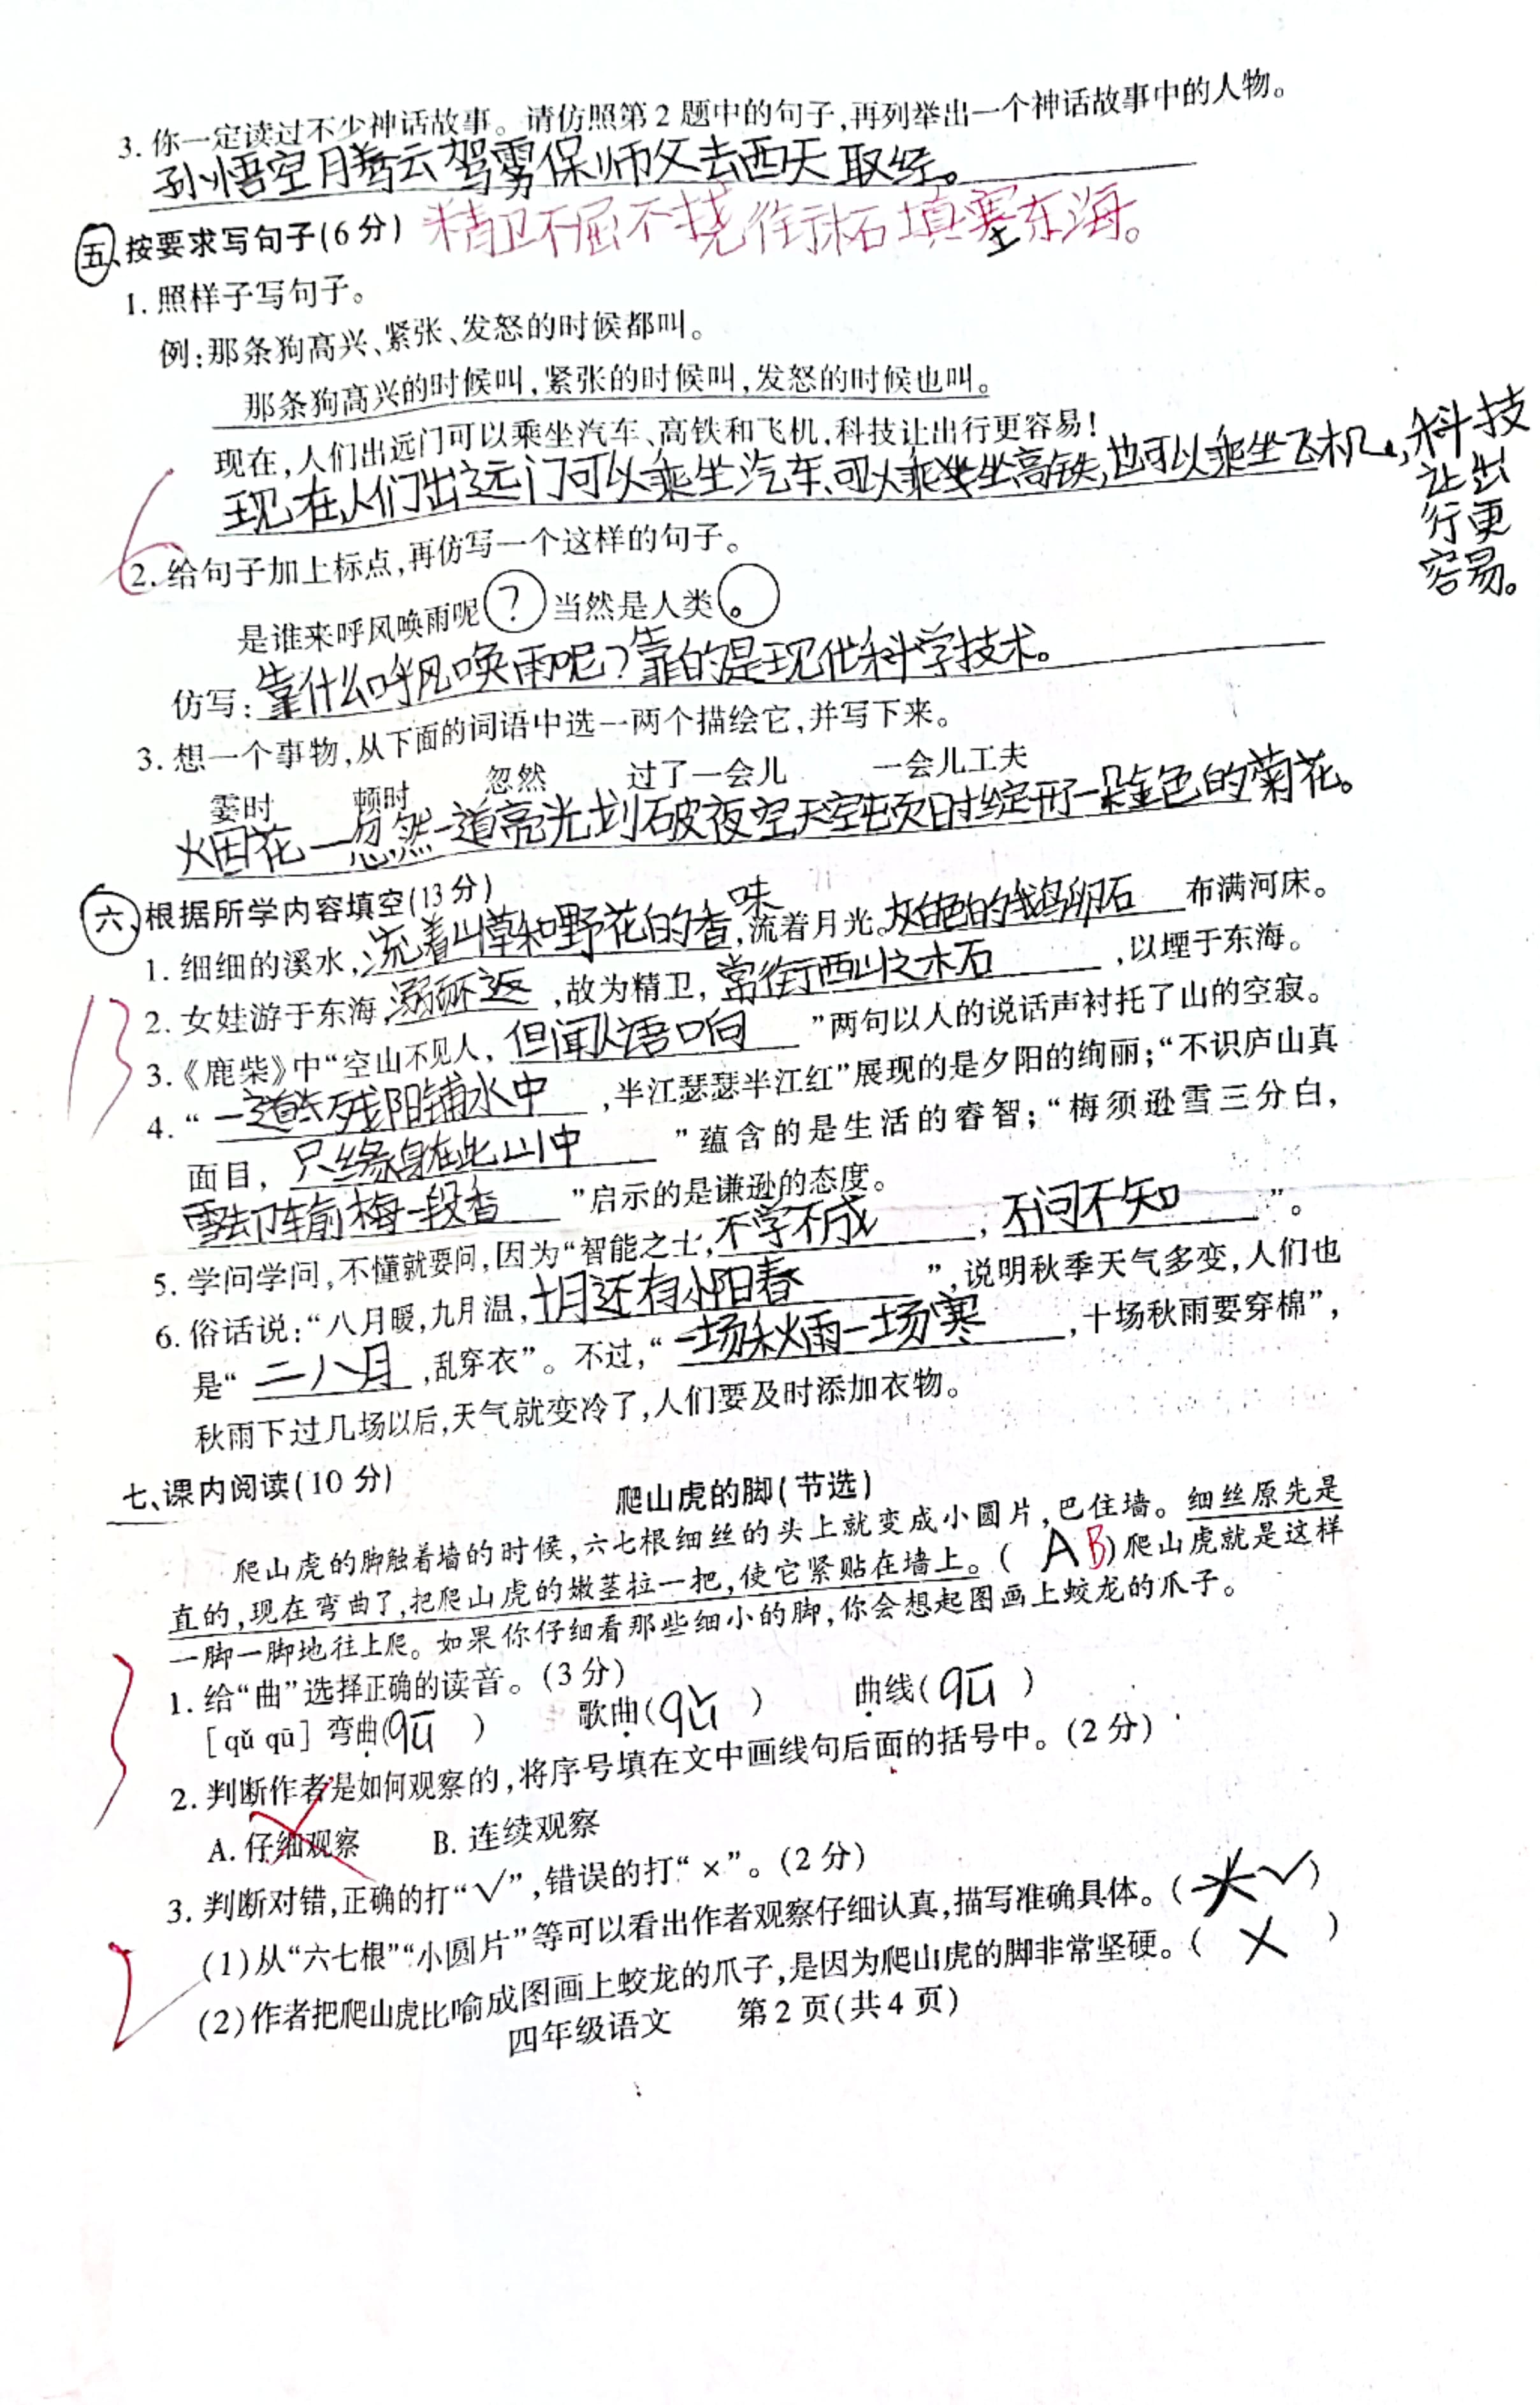 3. 你一定读过不少神话故事。请仿照第2题中的句子,再列举出一个神话故事中的人物。
孙悟空腾云驾雾保师父去西天取经。
精卫不屈不挠衔石填塞东海。
五、按要求写句子(6分)
1. 照样子写句子。
例:那条狗高兴、紧张、发怒的时候都叫。
那条狗高兴的时候叫,紧张的时候叫,发怒的时候也叫。
现在,人们出远门可以乘坐汽车、高铁和飞机,科技让出行更容易!
现在,人们出远门可以乘坐汽车、可以乘坐高铁,也可以乘坐飞机,科技
让出
行更
容易。
6
2. 给句子加上标点,再仿写一个这样的句子。
是谁来呼风唤雨呢?当然是人类。
仿写:靠什么呼风唤雨呢?靠的是现代科学技术。
3. 想一个事物,从下面的词语中选一两个描绘它,并写下来。
霎时 顿时 忽然 过了一会儿 一会儿工夫
火田花—忽然一道亮光划破夜空天空顿时绽开了一朵金色的菊花。
六、根据所学内容填空(13分)
1. 细细的溪水,流着山草和野花的香味,流着月光。灰白色的鹅卵石布满河床。
2. 女娃游于东海,溺而不返,故为精卫,常衔西山之木石,以堙于东海。
13
3.《鹿柴》中“空山不见人,但闻人语响”两句以人的说话声衬托了山的空寂。
4. “一道残阳铺水中,半江瑟瑟半江红”展现的是夕阳的绚丽;“不识庐山真
面目,只缘身在此山中”蕴含的是生活的睿智;“梅须逊雪三分白,
雪却输梅一段香”启示的是谦逊的态度。
5. 学问学问,不懂就要问,因为“智能之士,不学不成,不问不知”。
6. 俗话说:“八月暖,九月温,十月还有小阳春”,说明秋季天气多变,人们也
是“二八月,乱穿衣”。不过,“一场秋雨一场寒,十场秋雨要穿棉”,
秋雨下过几场以后,天气就变冷了,人们要及时添加衣物。
七、课内阅读(10分)
爬山虎的脚(节选)
爬山虎的脚触着墙的时候,六七根细丝的头上就变成小圆片,巴住墙。细丝原先是
直的,现在弯曲了,把爬山虎的嫩茎拉一把,使它紧贴在墙上。( A B)爬山虎就是这样
一脚一脚地往上爬。如果你仔细看那些细小的脚,你会想起图画上蛟龙的爪子。
3
1. 给“曲”选择正确的读音。(3分)
[qǔ qū] 弯曲(qū ) 歌曲(qǔ ) 曲线(qū )
2. 判断作者是如何观察的,将序号填在文中画线句后面的括号中。(2分)
A. 仔细观察 B. 连续观察
3. 判断对错,正确的打“√”,错误的打“×”。(2分)
2
(1)从“六七根”“小圆片”等可以看出作者观察仔细认真,描写准确具体。( √)
(2)作者把爬山虎比喻成图画上蛟龙的爪子,是因为爬山虎的脚非常坚硬。( × )
四年级语文 第2页(共4页)